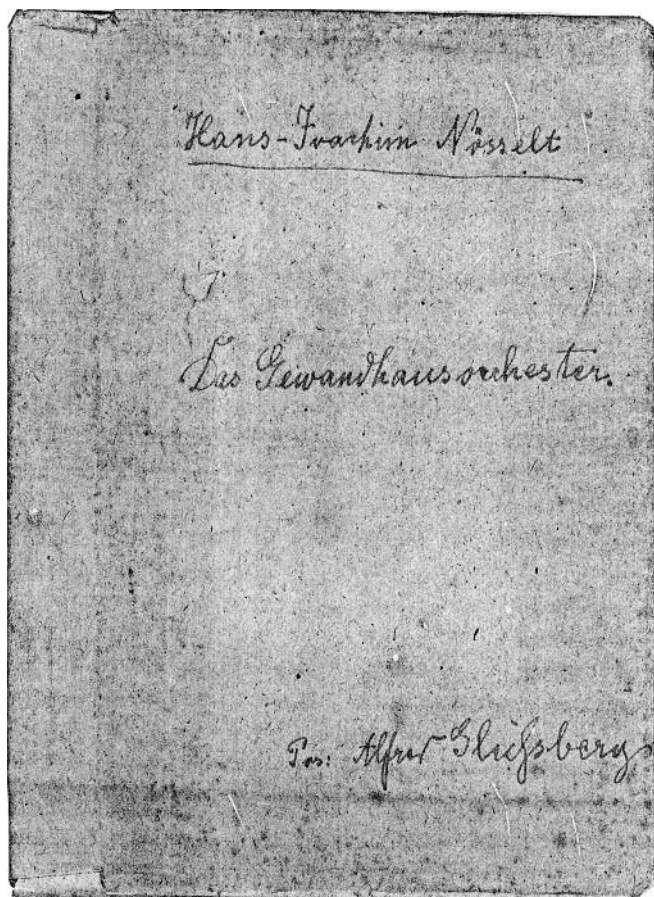 Hans-Joachim Nösselt
Das Gewandhausorchester.
Pos: Alfred Glußsberg